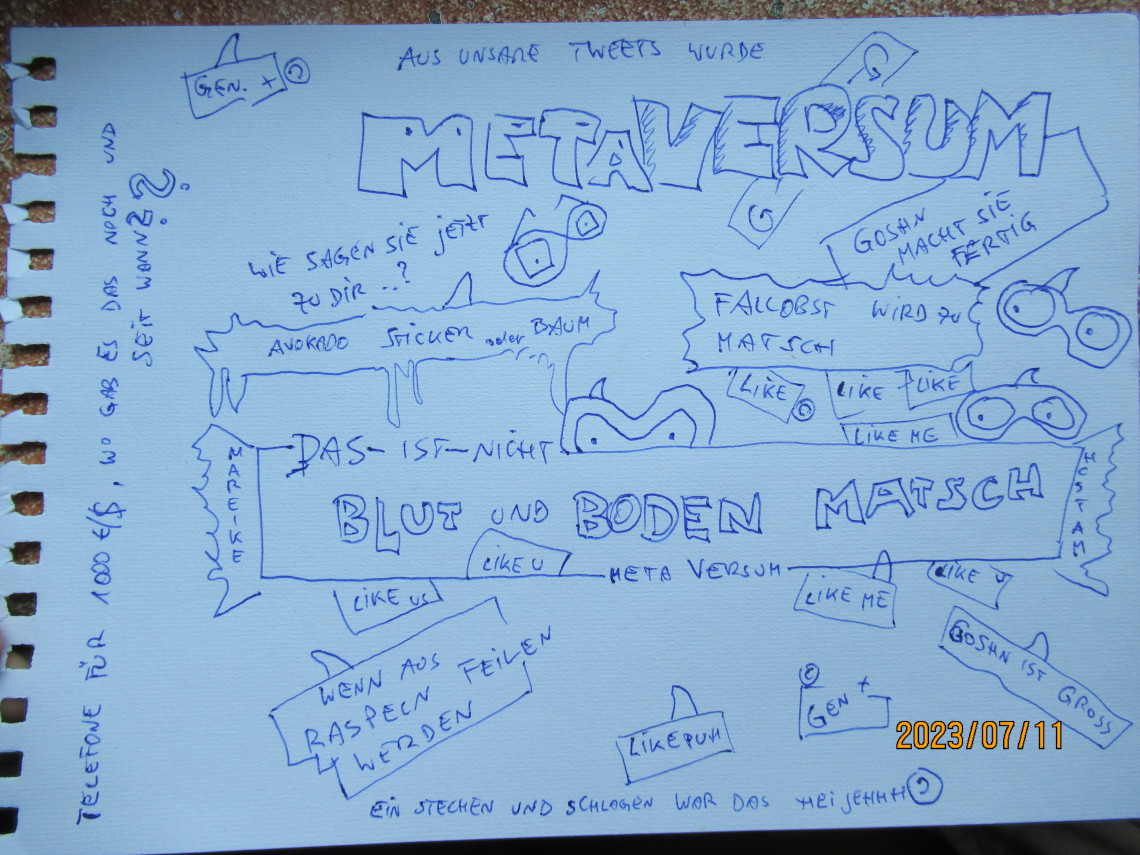 AUS UNSARE TWEETS WURDE
GEN. +
METAVERSUM
G
G
GOSHN
MACHT SIE
FERTIG
WIE SAGEN SIE JETZT
ZU DIR ..?
AVOKADO STICKER oder BAUM
FALLOBST WIRD ZU
MATSCH
LIKE
LIKE
LIKE
LIKE ME
DAS - IST - NICHT
MAREIKE
BLUT UND BODEN MATSCH
LIKE U
META VERSUM
LIKE US
LIKE ME
LIKE U
WENN AUS
RASPELN FEILEN
WERDEN
LIKE PUH
GEN +
GOSHN IST GROSS
EIN STECHEN UND SCHLAGEN WAR DAS
TELEFONE FÜR 1000 €/$, WO GAB ES DAS NOCH UND
SEIT WANN??
2023/07/11